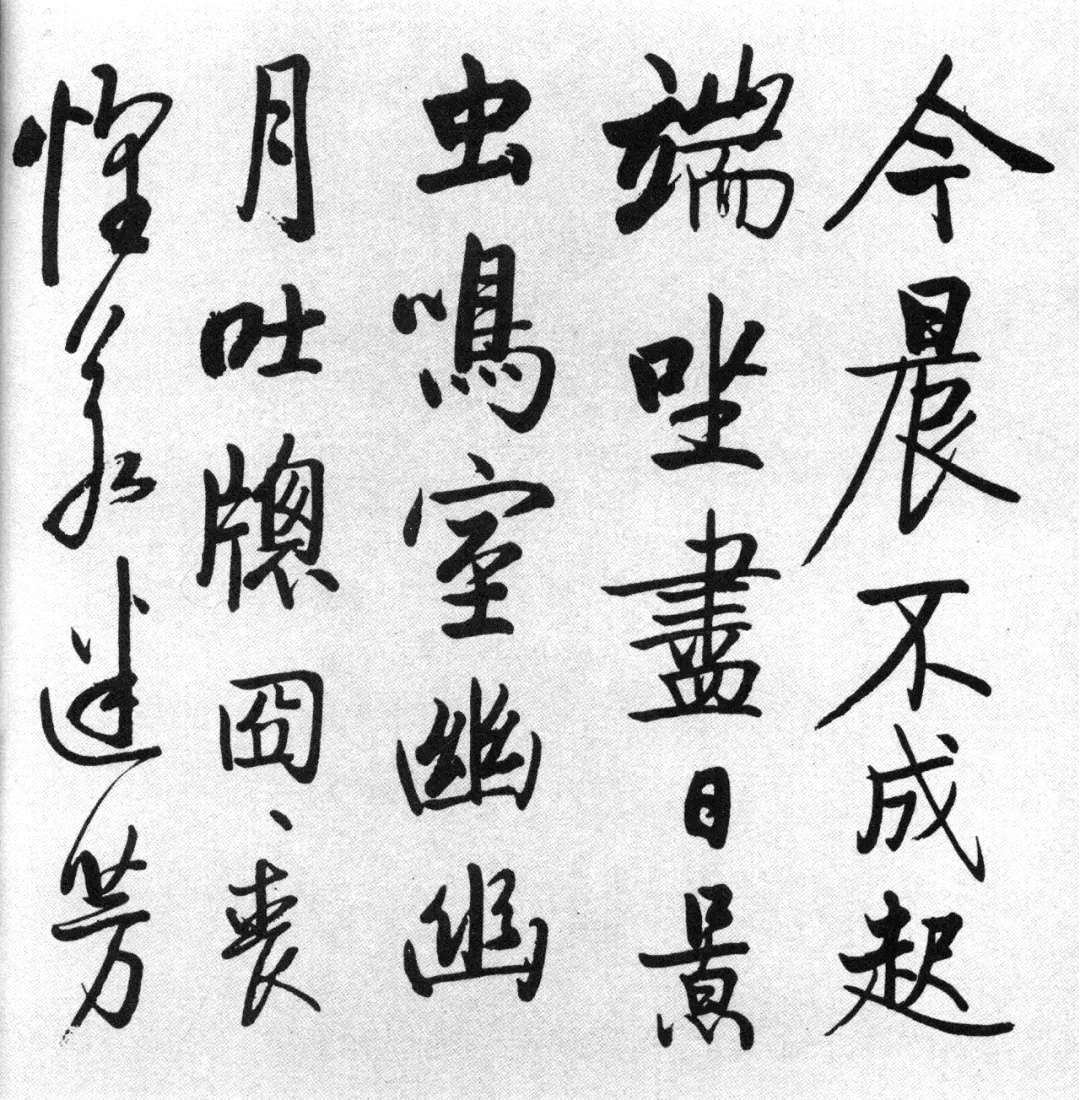 今晨不成起
端坐盡日景
虫鳴室幽幽
月吐牕囧、喪
懷若迷芳